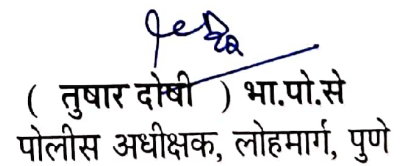 ( तुषार दोषी ) भा.पो.से
पोलीस अधीक्षक, लोहमार्ग, पुणे